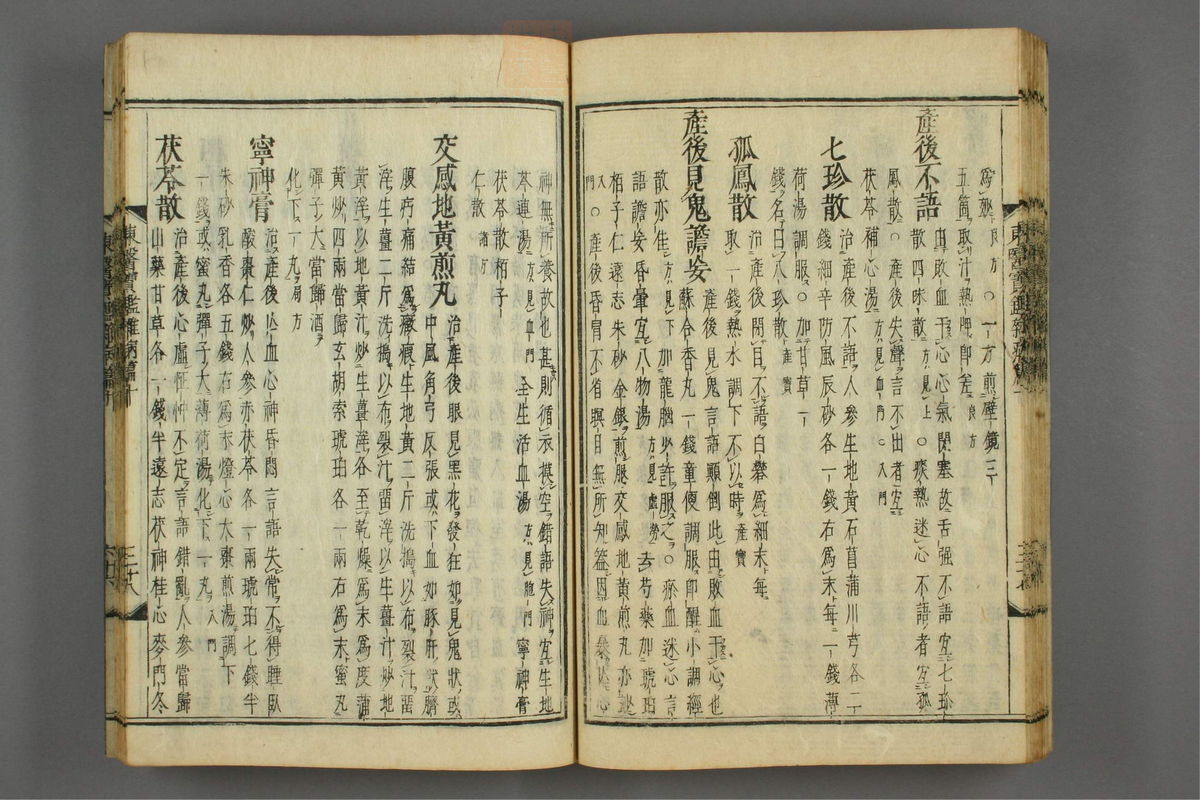 爲-妙 良方 ○一-方煎壁-鏡三-
五箇取汁熱呷卽差 良方
產後不語 由敗血干心心氣閉塞故舌強不語宜七珍
散四味散 方見上 ○痰熱迷心不語者宜孤
鳳散○產後失聲言不出者宜
茯苓補心湯 方見血門 ○入門
七珍散 治產後不語人參生地黃石菖蒲川芎各二
錢細辛防風辰砂各一錢右爲末每一錢薄
荷湯調服○加甘草一
錢名曰八珍散 產寶
孤鳳散 治產後閉目不語白礬爲細末每
取一錢熱水調下不以時 產寶
產後見鬼譫妄 產後見鬼言語顚倒此由敗血干心也
蘇合香丸一錢童便調服卽醒小調經
散亦佳 方見下 加龍腦少許服之○瘀血迷心言
語譫妄昏暈宜八物湯 方見虛勞 去芍藥加琥珀
栢子仁遠志朱砂金銀煎服交感地黃煎丸亦
入門 ○產後昏冒不省瞑目無所知盖因血暴
神無所養故也甚則循衣摸空錯語失神宜生地
芩連湯 方見血門 全生活血湯 方見胞門 寧神膏
茯苓散栢子
仁散 諸方
交感地黃煎丸 治產後眼見黑花發狂如見鬼狀或
中風角弓反張或下血如豚肝狀臍
腹㽲痛結爲癥瘕生地黃二斤洗搗以布裂汁留
滓生薑二斤洗搗以布裂汁留滓以生薑汁炒地
黃滓以地黃汁炒生薑滓各至乾燥爲末爲度蒲
黃炒四兩當歸玄胡索琥珀各一兩右爲末蜜丸
彈子大當歸酒
化下一丸 局方
寧神膏 治產後亡血心神昏悶言語失常不得睡臥
酸棗仁炒人參赤茯苓各一兩琥珀七錢半
朱砂乳香各五錢右爲末燈心大棗煎湯調下
一錢或蜜丸彈子大薄荷湯化下一丸 入門
茯苓散 治產後心虛怔忡不定言語錯亂人參當歸
山藥甘草各一錢半遠志茯神桂心麥門冬
東醫寶鑑雜病篇十
三十八